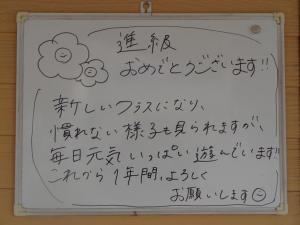 進級
おめでとうございます!!
新しいクラスになり、
慣れない様子も見られますが、
毎日元気いっぱい遊んでいます!!
これから1年間、よろしく
お願いします